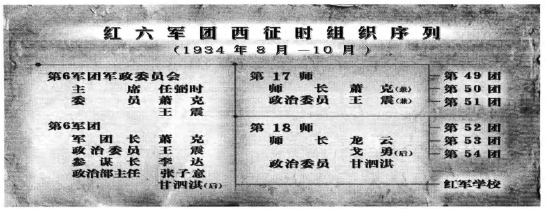 红六军团西征时组织序列
(1934年8月—10月)
第6军团军政委员会
主席 任弼时
委员 萧克
王震
第6军团
军团长 萧克
政治委员 王震
参谋长 李达
政治部主任 张子意
甘泗淇(后)
第17师
师长 萧克(兼)
政治委员 王震(兼)
第18师
师长 龙云
戈勇(后)
政治委员 甘泗淇
第49团
第50团
第51团
第52团
第53团
第54团
红军学校